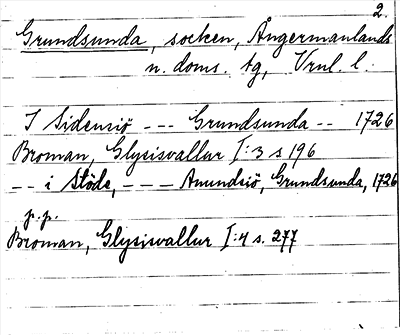 2.
Grundsunda, socken, Ångermanlands
n. doms. tg, Vrnl. l.
I Sidensiö --- Grundsunda -- 1726
Broman, Glysisvallur I:3 s 196
-- i Stöde, --- Amundsiö, Grundsunda, 1726
p.p.
Broman, Glysisvallur I:4 s. 277